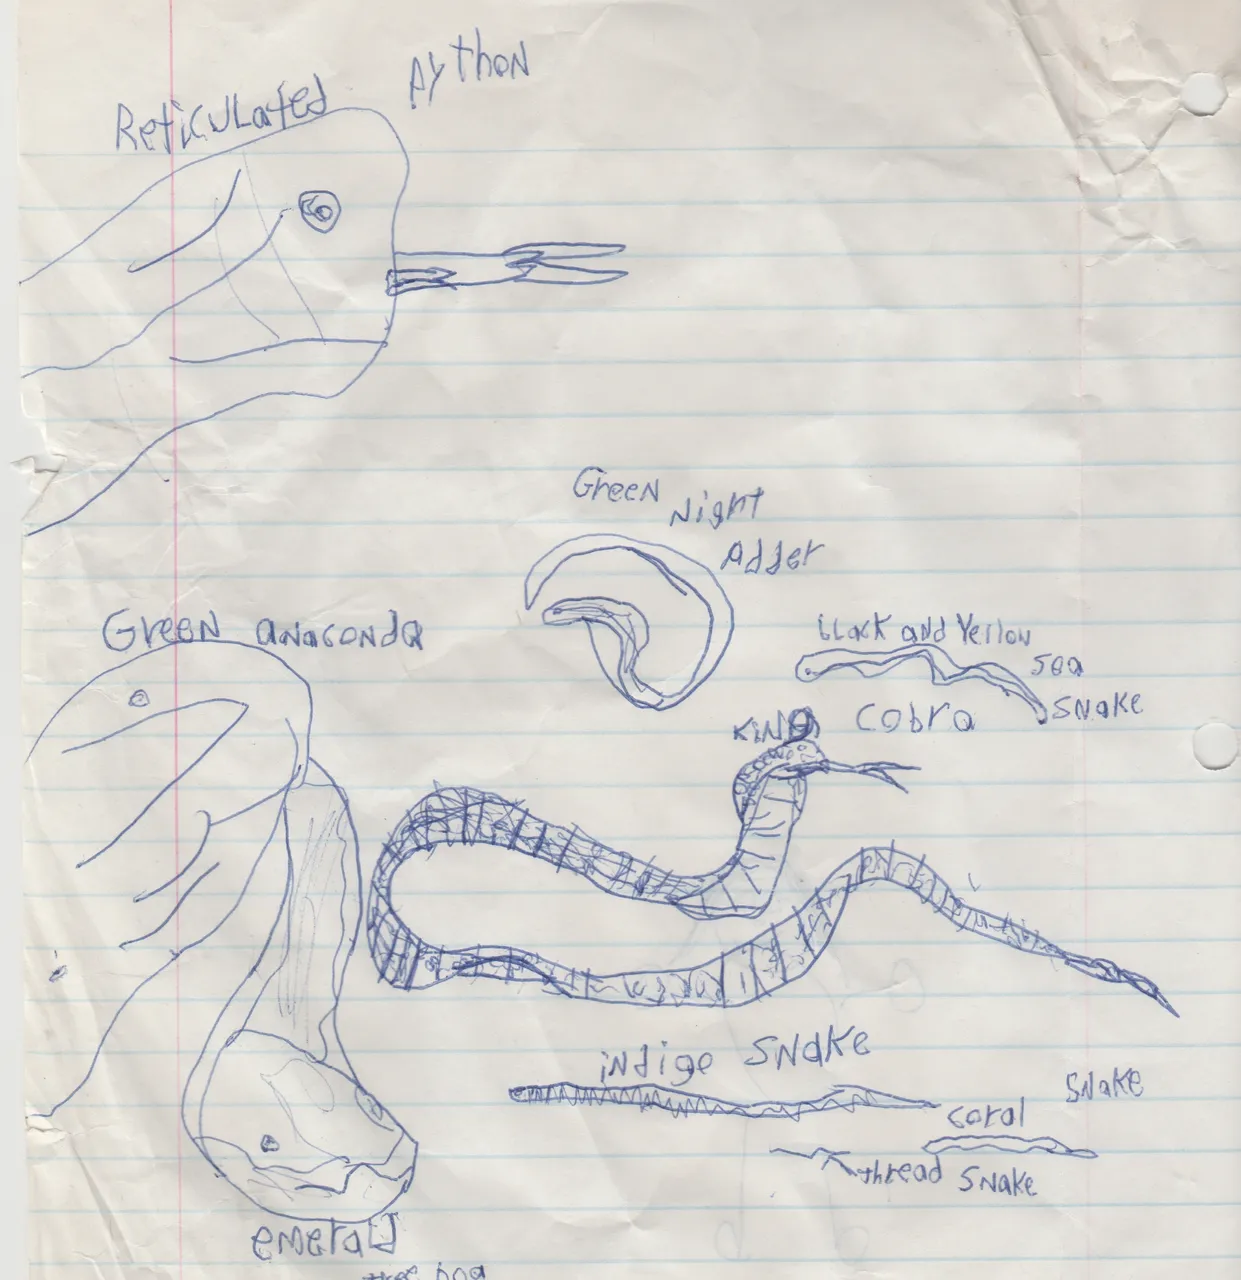 Reticulated Python
Green Night
Adder
Green anaconda
black and Yellow
Sea
Snake
King Cobra
indige Snake
Coral Snake
thread Snake
emerald
tree boa